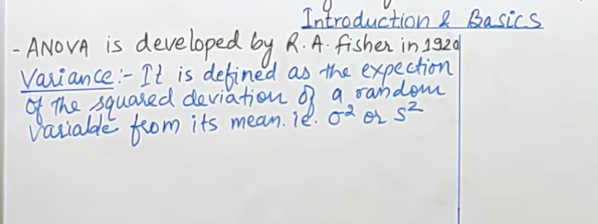 Introduction & Basics
- ANOVA is developed by R.A. fisher in 1920
Variance:- It is defined as the expection
of the squared deviation of a random
variable from its mean. ie. σ² or s²